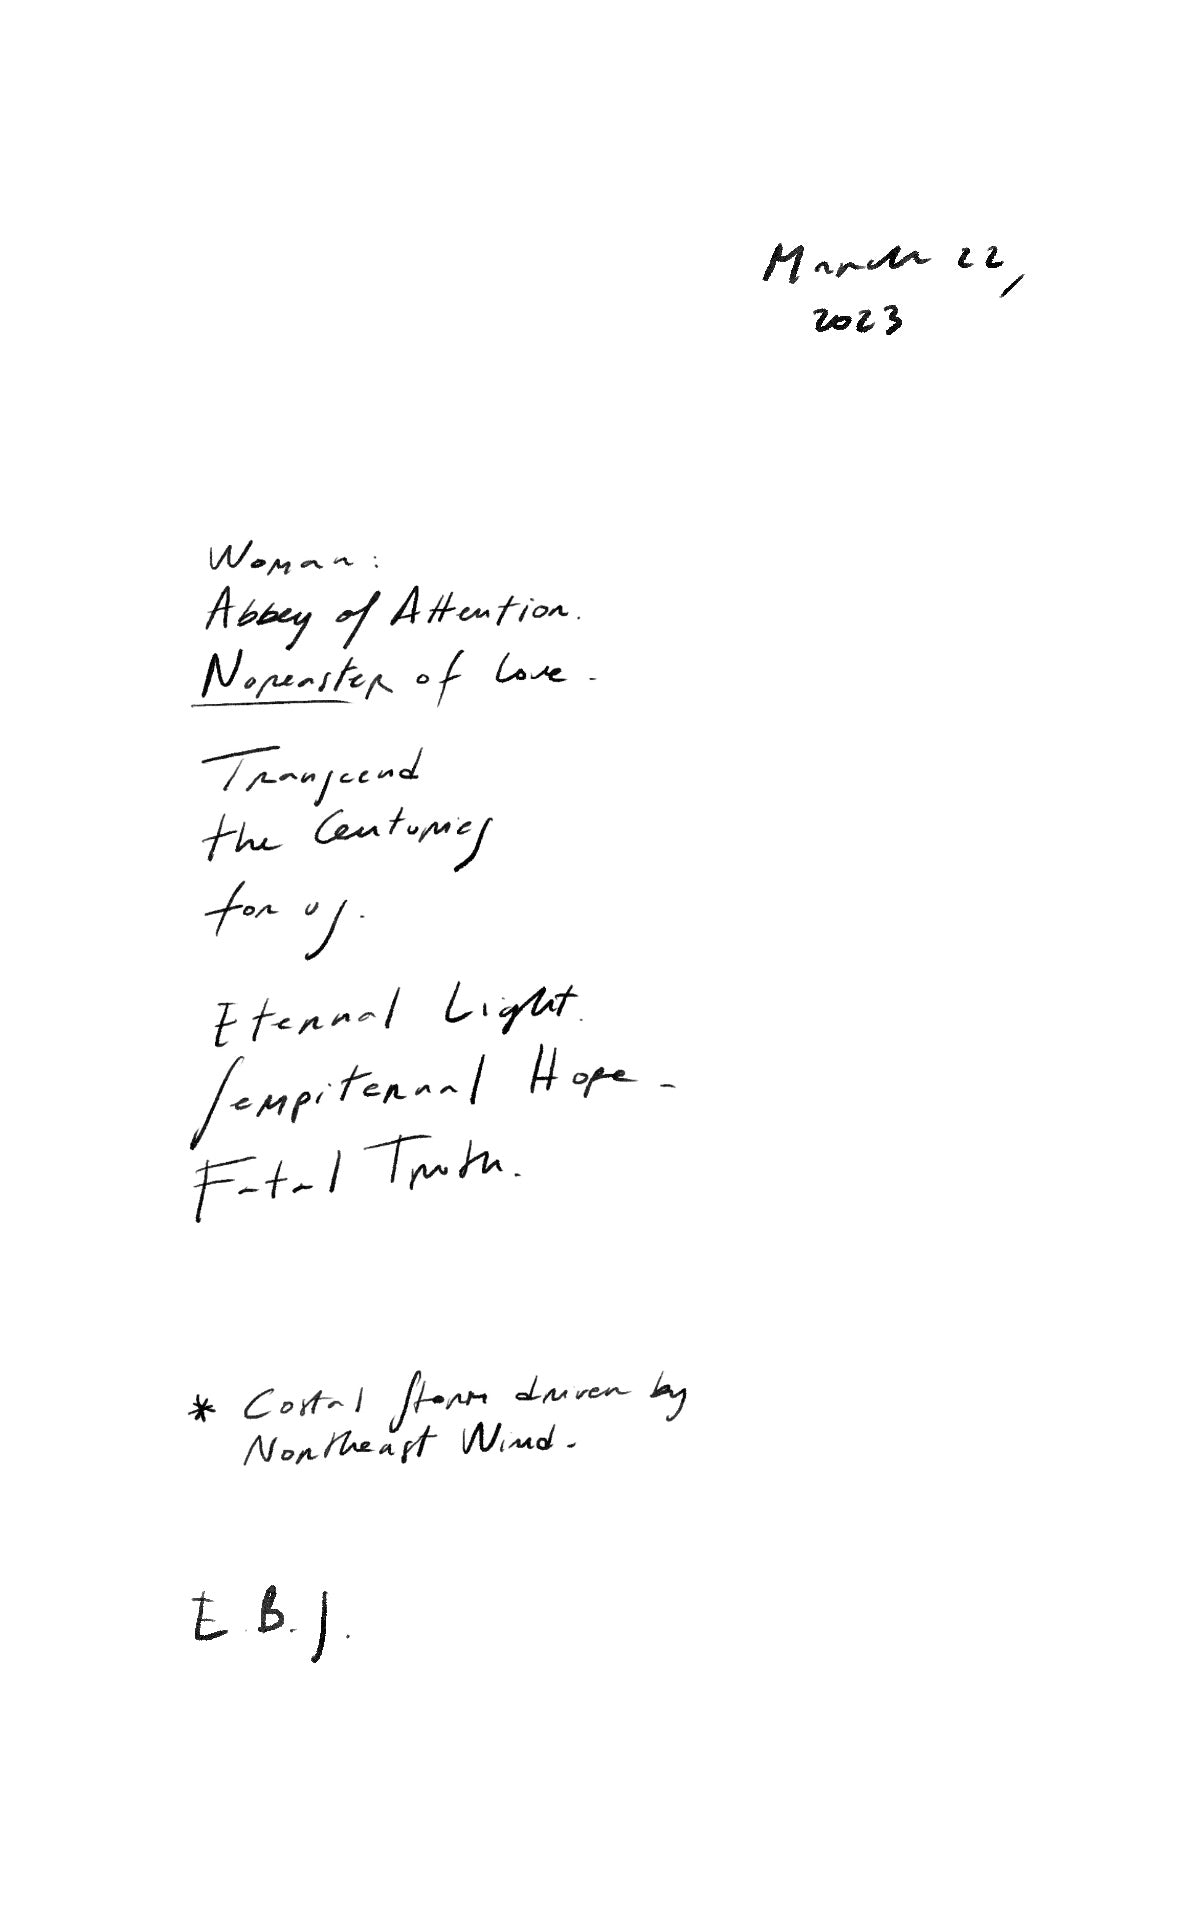 March 22,
2023
Woman:
Abbey of Attention.
Noreaster of Love.
Transcend
the Centuries
for us.
Eternal Light.
Sempiternal Hope.
Fatal Truth.
* Costal Storm driven by
Northeast Wind.
E. B. J.